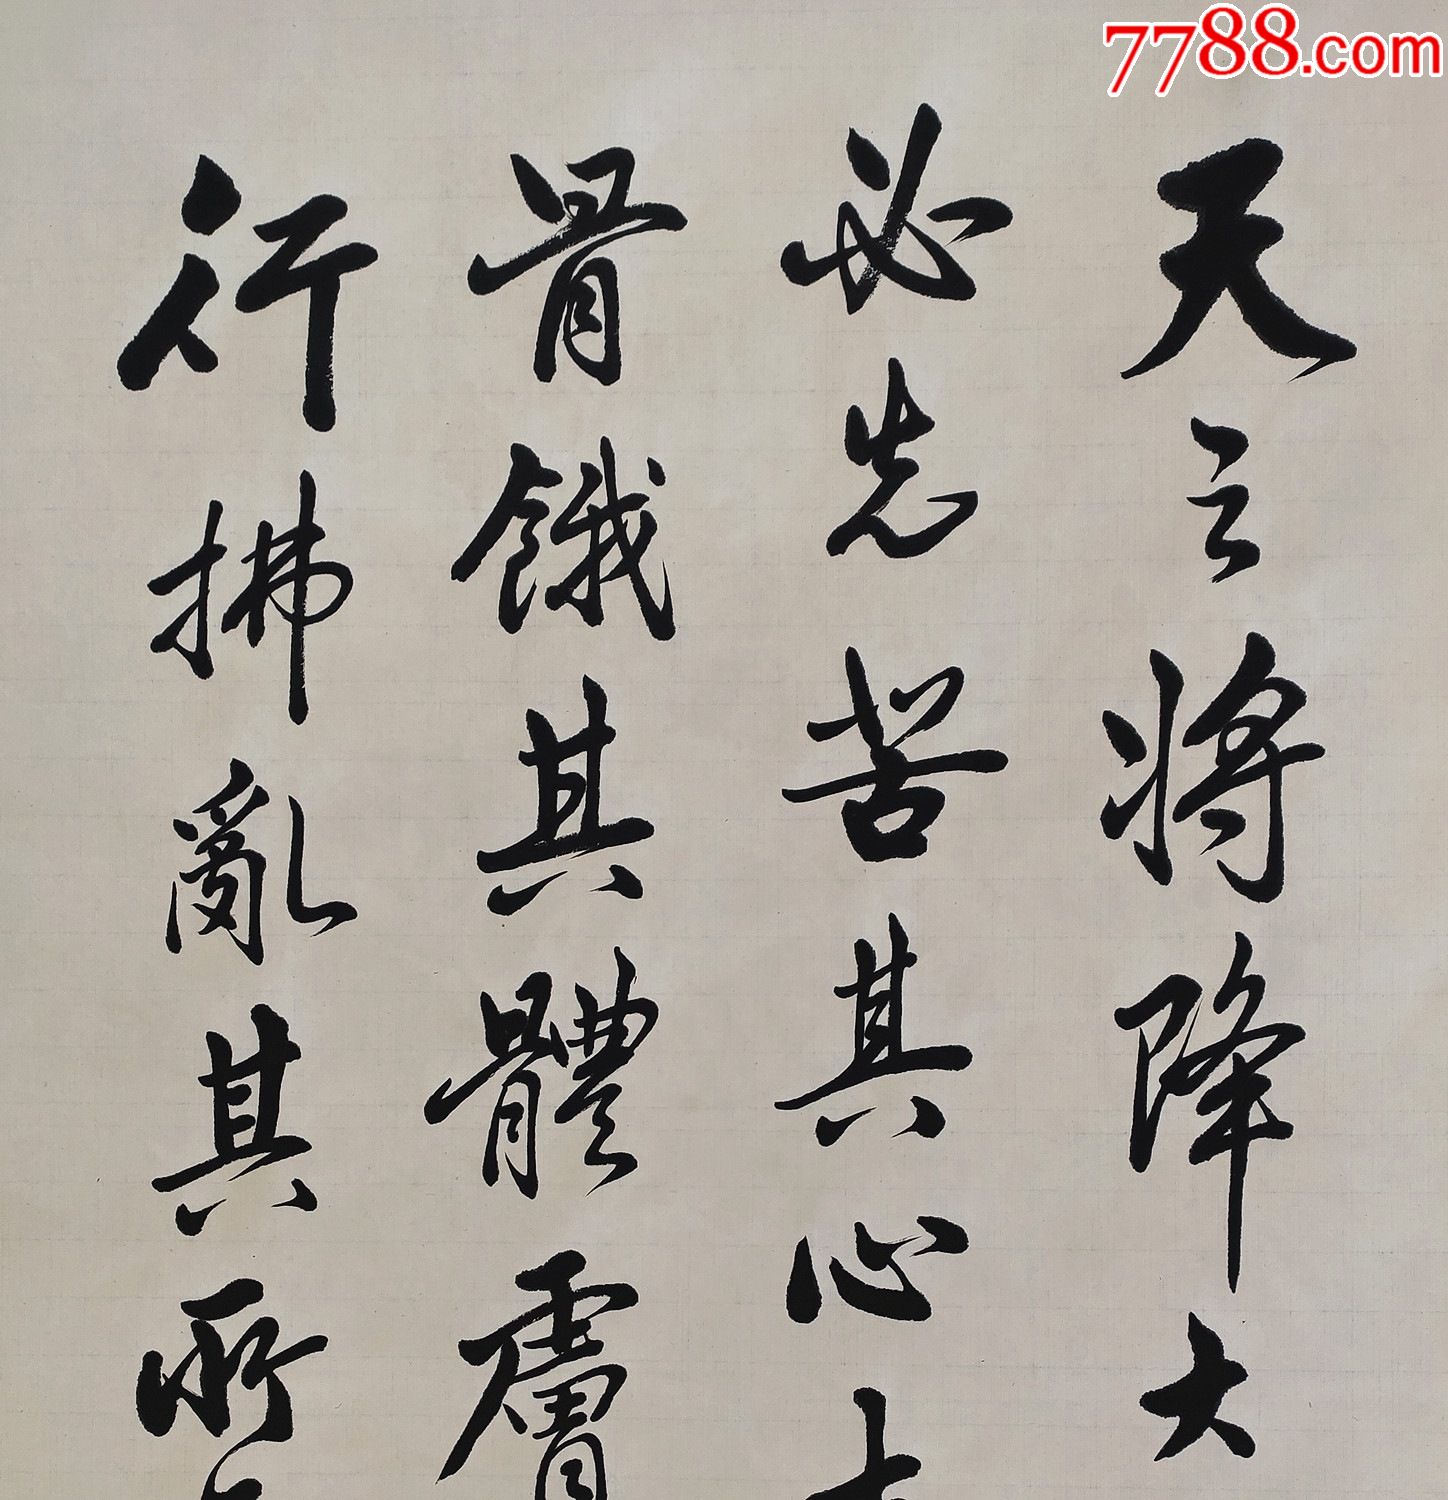 7788.com
天之将降大
必先苦其心
骨餓其體膚
行拂亂其所